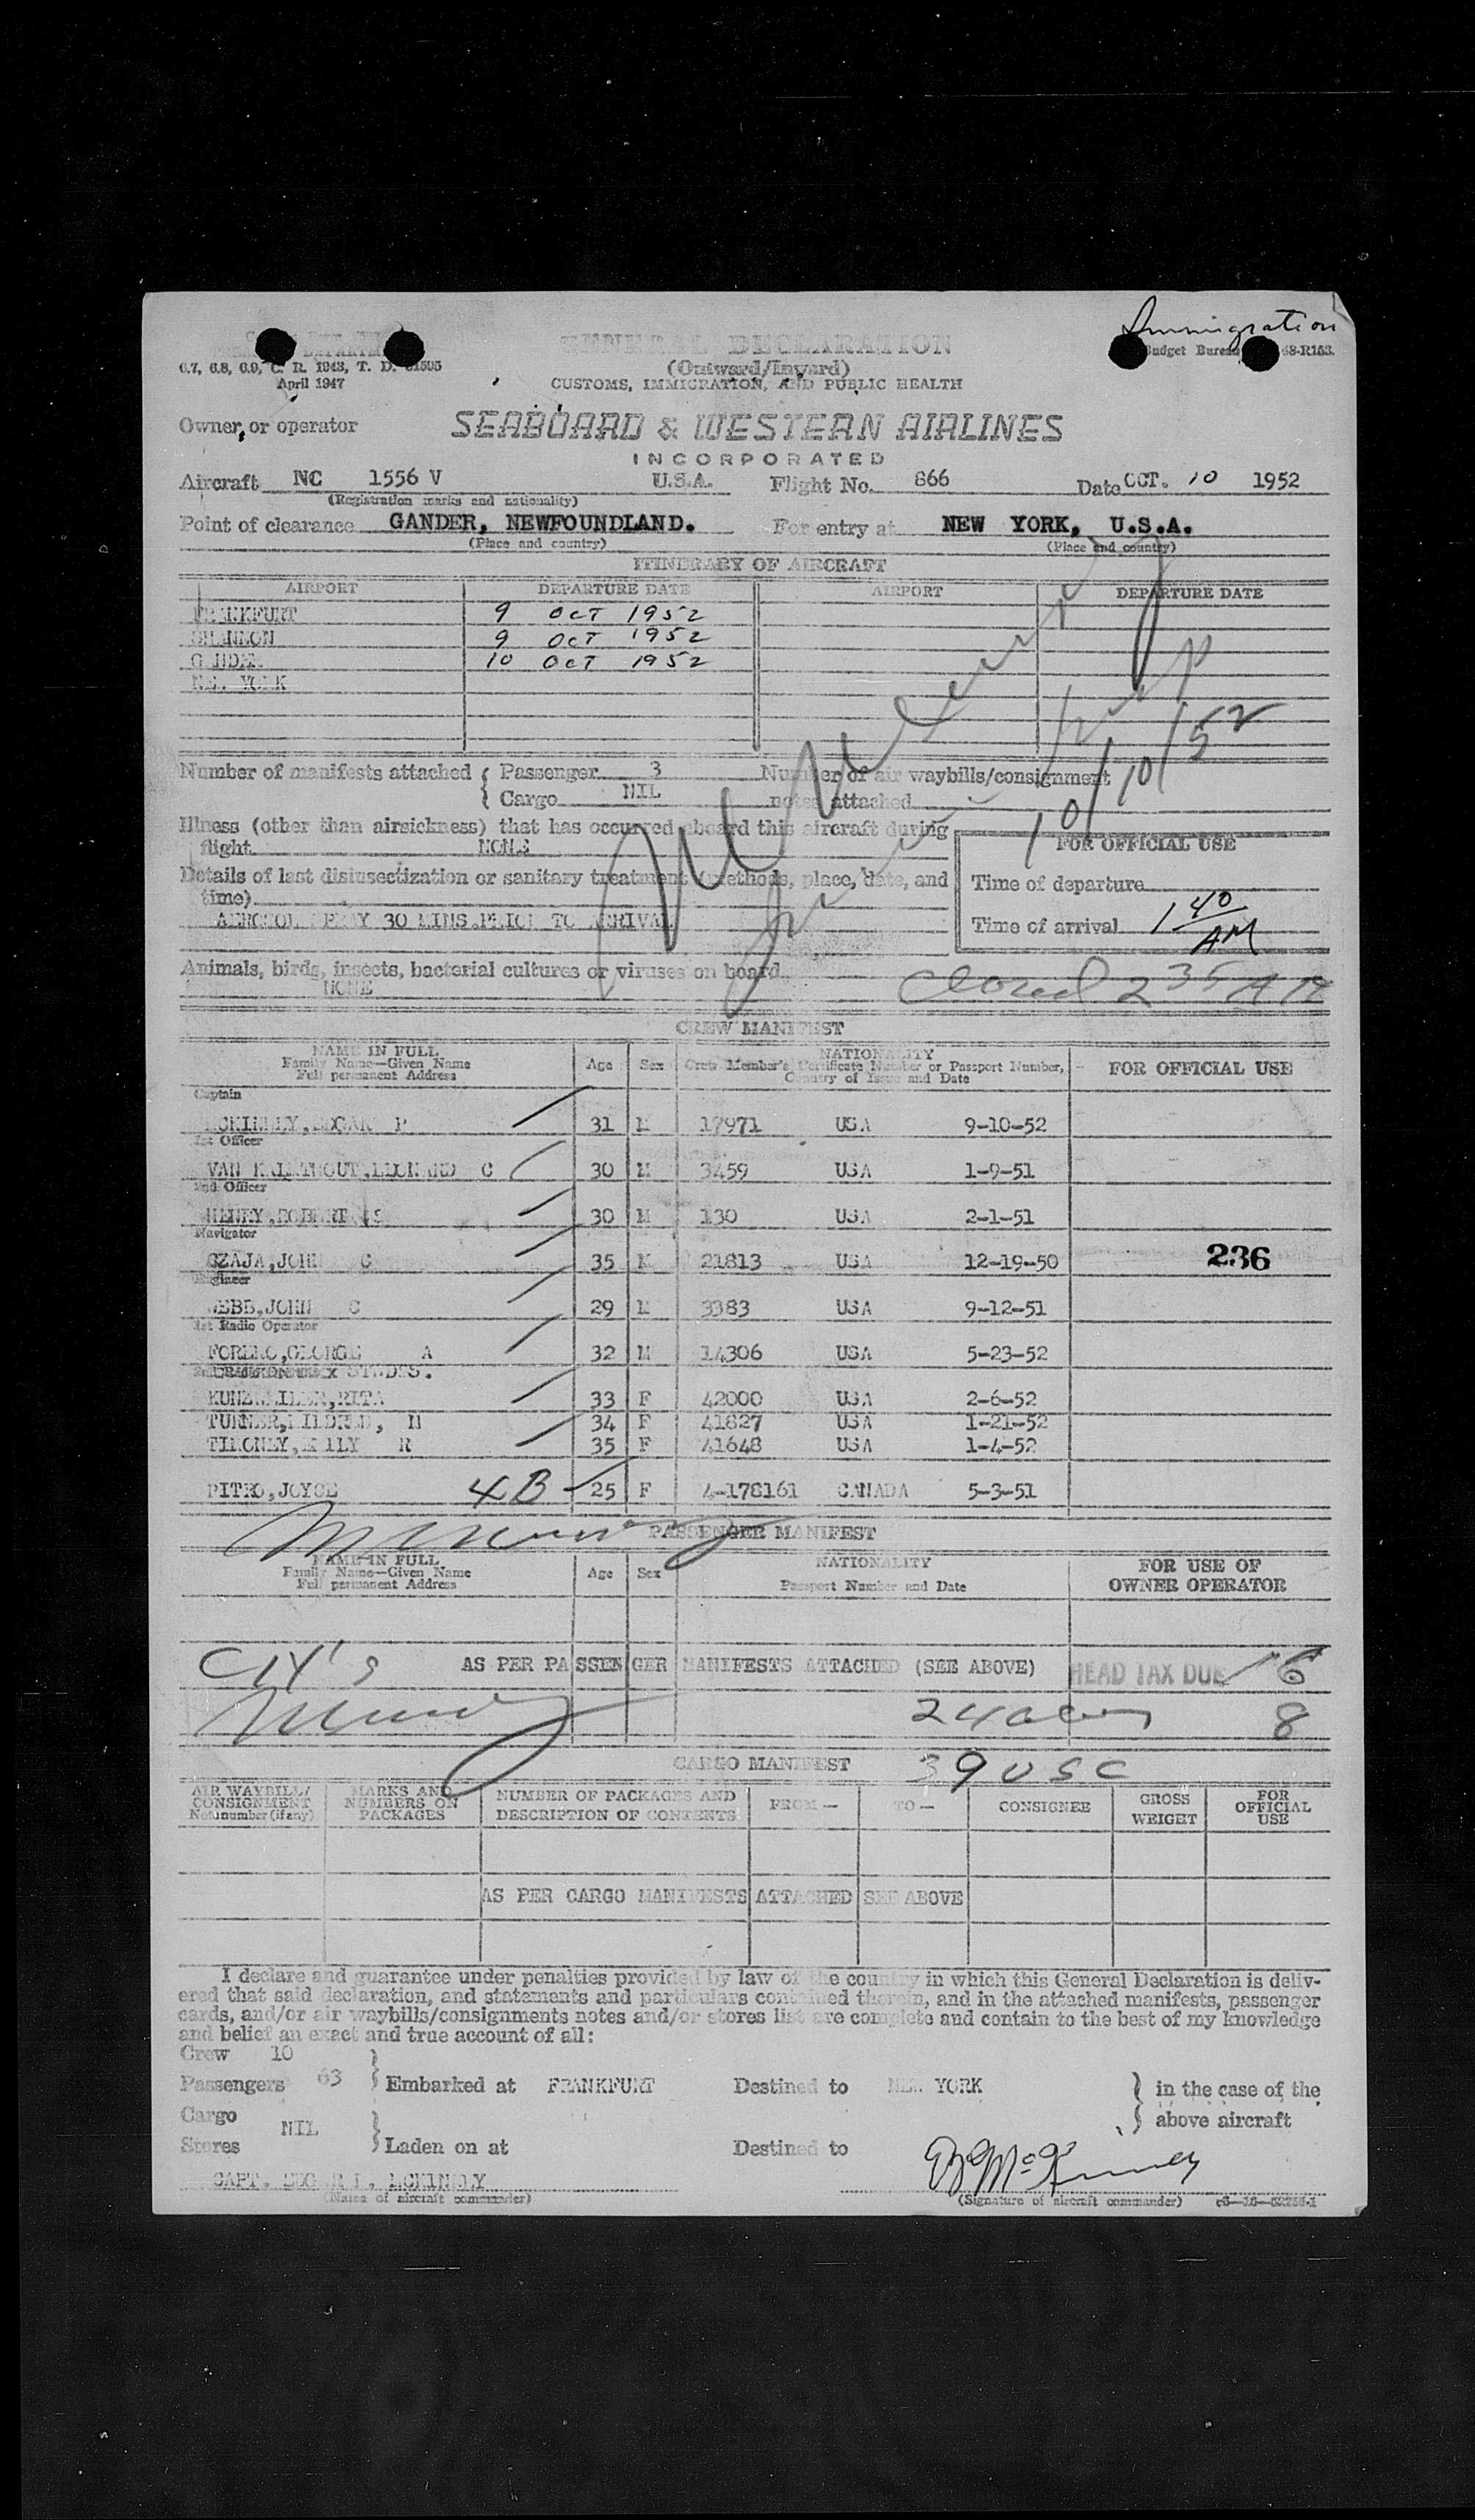 Immigration
Budget Bureau 48-R153.
GENERAL DECLARATION
6.7, 6.8, 6.9, C. R. 1943, T. D. 51505
(Outward/Inward)
April 1947
CUSTOMS, IMMIGRATION, AND PUBLIC HEALTH
Owner or operator SEABOARD & WESTERN AIRLINES
INCORPORATED
Aircraft NC 1556 V U.S.A. Flight No. 866 Date OCT. 10 1952
(Registration marks and nationality)
Point of clearance GANDER, NEWFOUNDLAND. For entry at NEW YORK, U.S.A.
(Place and country) (Place and country)
ITINERARY OF AIRCRAFT
AIRPORT DEPARTURE DATE AIRPORT DEPARTURE DATE
FRANKFURT 9 OCT 1952
SHANNON 9 OCT 1952
GANDER 10 OCT 1952
NEW YORK
10/10/52
Number of manifests attached { Passenger 3 Number of air waybills/consignment
{ Cargo NIL notes attached
Illness (other than airsickness) that has occurred aboard this aircraft during
flight NONE
FOR OFFICIAL USE
Details of last disinsectization or sanitary treatment (methods, place, date, and
time)
Time of departure
AEROSOL SPRAY 30 MINS.PRIOR TO ARRIVAL
Time of arrival 1 40 AM
Animals, birds, insects, bacterial cultures or viruses on board
NONE
2 35 AM
CREW MANIFEST
NAME IN FULL Age Sex NATIONALITY FOR OFFICIAL USE
Family Name—Given Name Crew Member's Certificate Number or Passport Number,
Full permanent Address Country of Issue and Date
Captain
MCKINLEY,EDGAR P 31 M 17971 USA 9-10-52
1st Officer
VAN C 30 M 3459 USA 1-9-51
2nd Officer
HENRY,ROBERT S 30 M 130 USA 2-1-51
Navigator
CZAJA,JOHN C 35 M 21813 USA 12-19-50 236
Engineer
WEBB,JOHN C 29 M 3383 USA 9-12-51
1st Radio Operator
GEORGE A 32 M 14306 USA 5-23-52
STWDES.
RITA 33 F 42000 USA 2-6-52
TURNER,MILDRED, H 34 F 41827 USA 1-21-52
TIMONEY,EMILY R 35 F 41648 USA 1-4-52
PITRO,JOYCE 4B 25 F 4-178161 CANADA 5-3-51
PASSENGER MANIFEST
NAME IN FULL Age Sex NATIONALITY FOR USE OF
Family Name—Given Name Passport Number and Date OWNER OPERATOR
Full permanent Address
AS PER PASSENGER MANIFESTS ATTACHED (SEE ABOVE) HEAD TAX DUE 16
24 8
CARGO MANIFEST 39 USC
AIR WAYBILL/ MARKS AND NUMBER OF PACKAGES AND FROM— TO— CONSIGNEE GROSS FOR
CONSIGNMENT NUMBERS ON DESCRIPTION OF CONTENTS WEIGHT OFFICIAL
Note number (if any) PACKAGES USE
AS PER CARGO MANIFESTS ATTACHED SEE ABOVE
I declare and guarantee under penalties provided by law of the country in which this General Declaration is deliv-
ered that said declaration, and statements and particulars contained therein, and in the attached manifests, passenger
cards, and/or air waybills/consignments notes and/or stores list are complete and contain to the best of my knowledge
and belief an exact and true account of all:
Crew 10
Passengers 63 } Embarked at FRANKFURT Destined to NEW YORK } in the case of the
Cargo } above aircraft
NIL
Stores } Laden on at Destined to
CAPT. EDGAR P. MCKINLEY
(Name of aircraft commander) (Signature of aircraft commander)